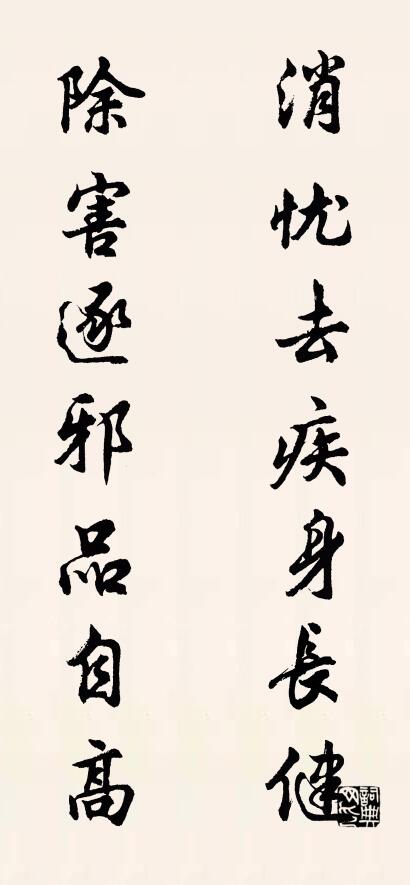 消忧去疾身長健
除害逐邪品自高